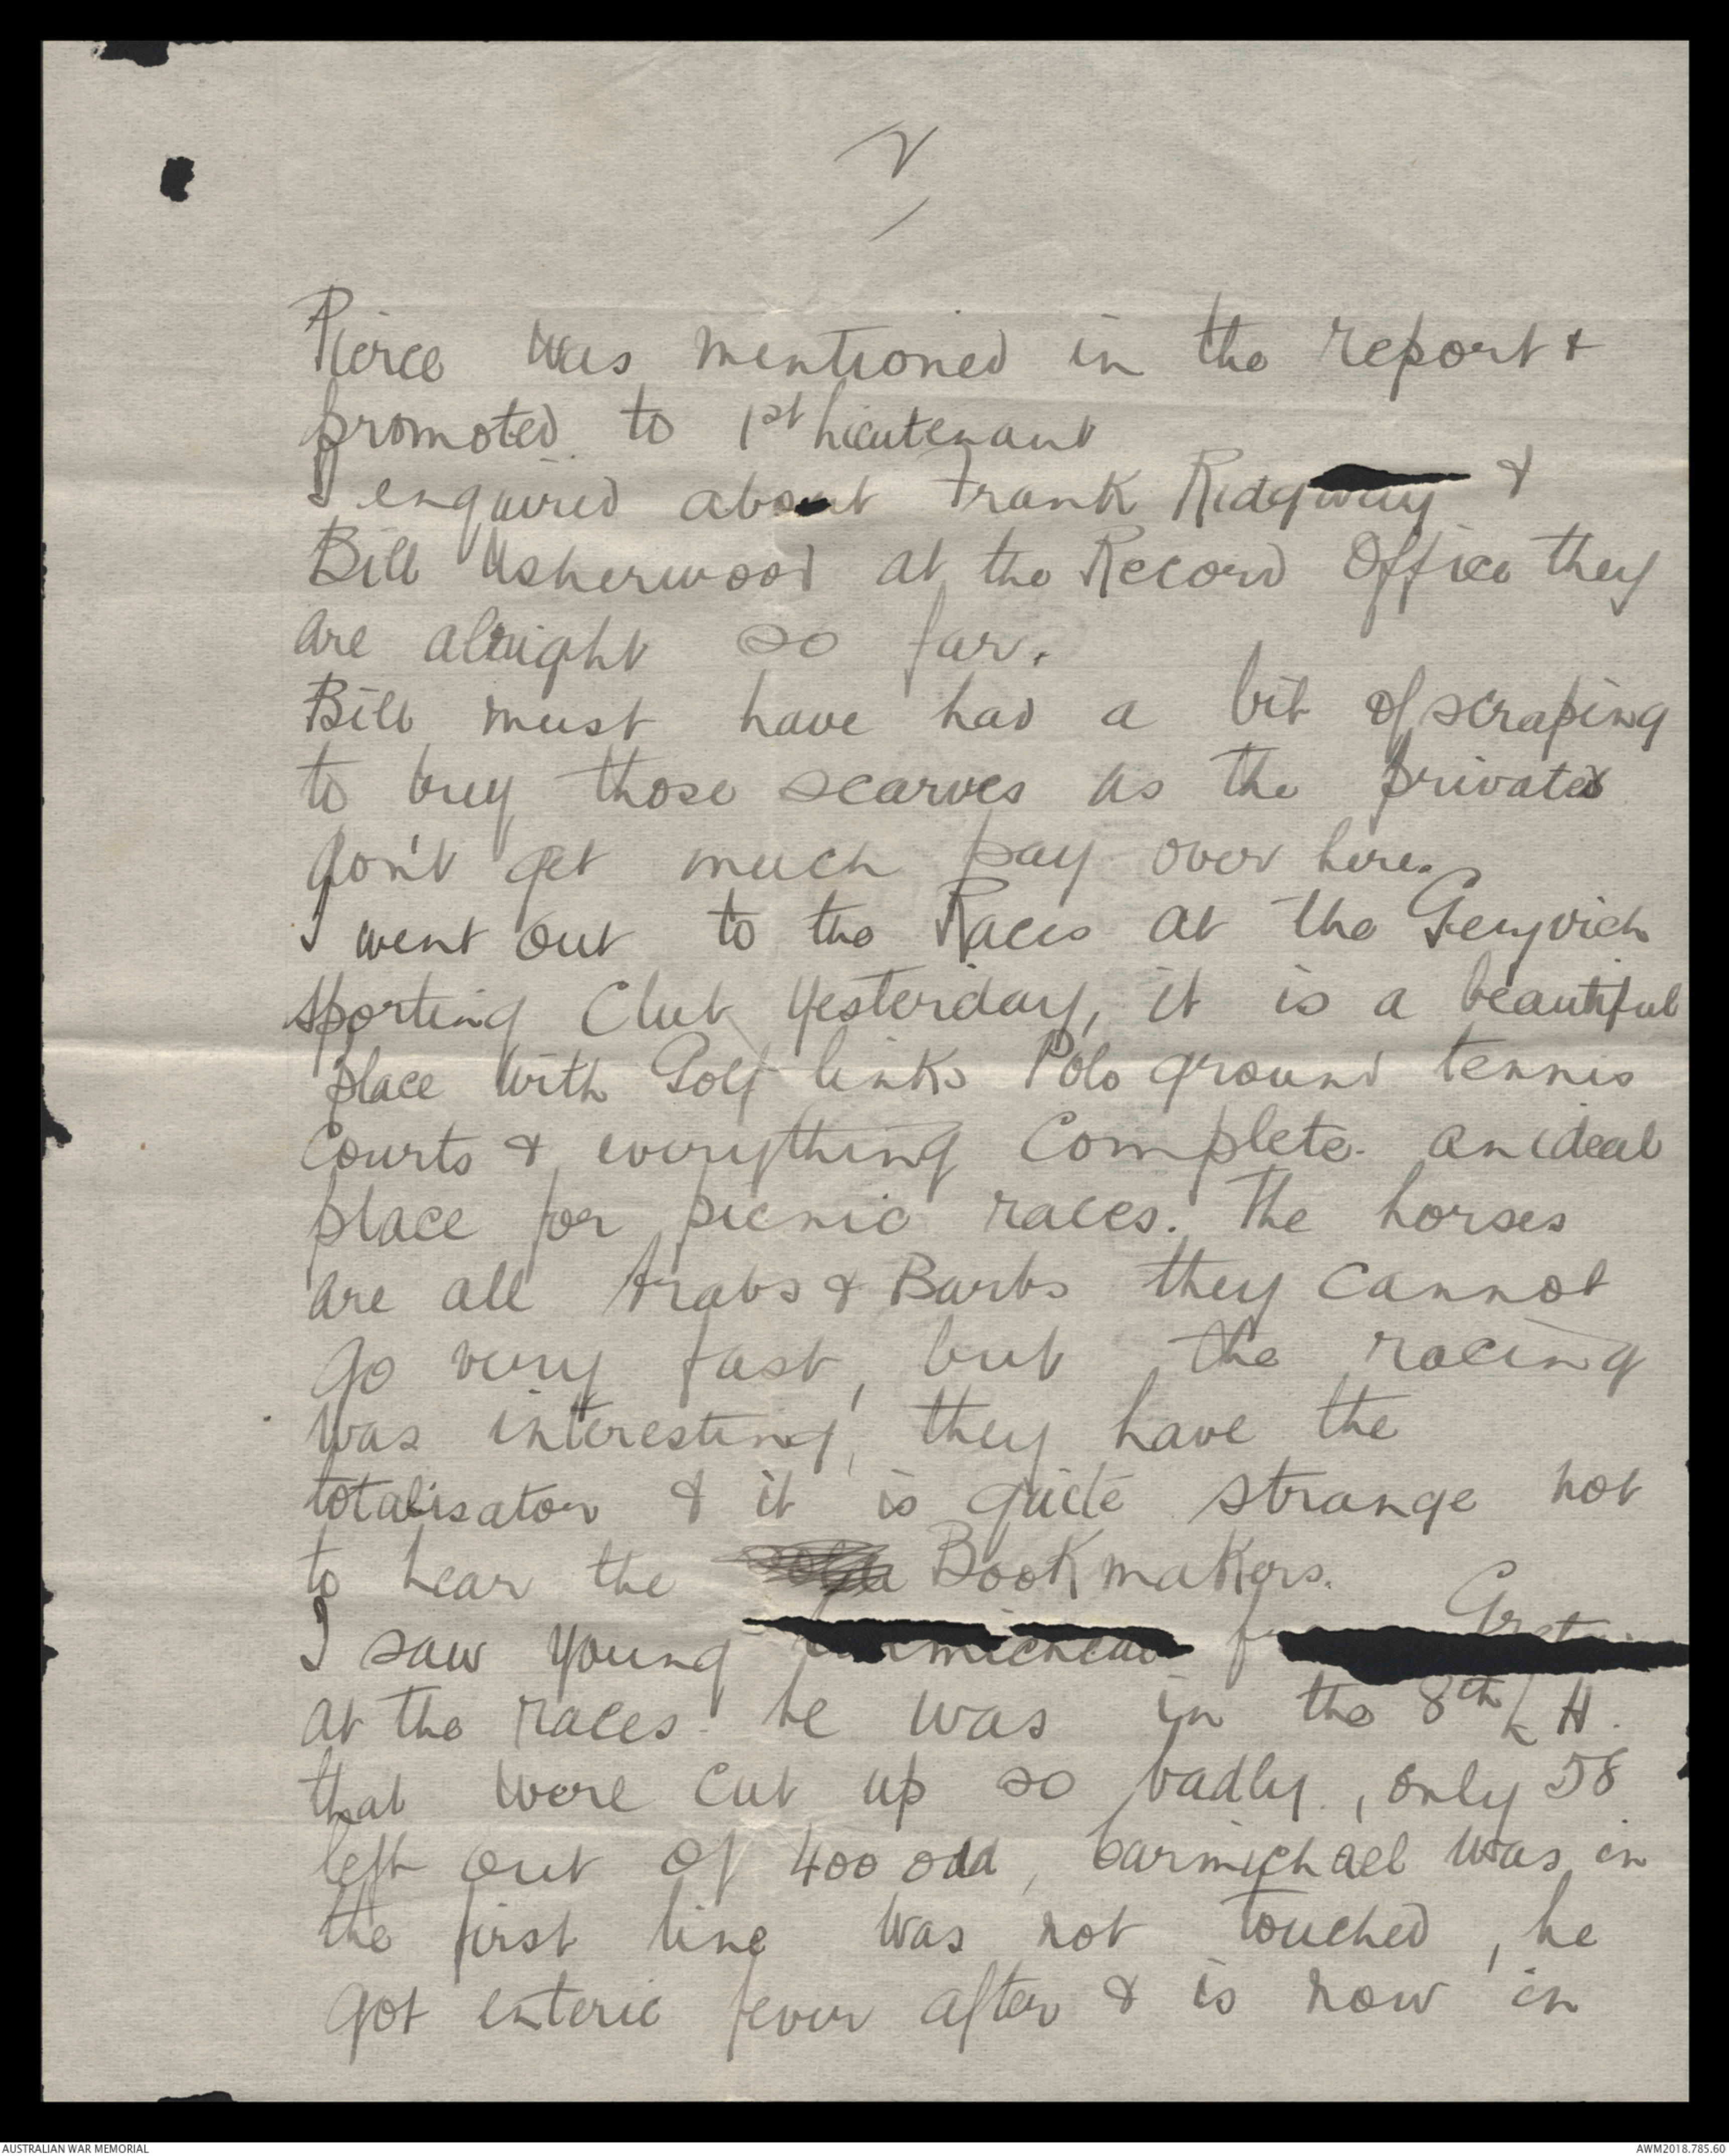 Pierce was mentioned in the report &
promoted to 1st Lieutenant
I enquired about Frank Ridgway &
Bill Usherwood at the Record Office they
are alright so far.
Bill must have had a bit of scraping
to buy those scarves as the privates
don't get much pay over here.
I went out to the Races at the
Sporting Club yesterday, it is a beautiful
place with Golf links Polo ground tennis
Courts & everything Complete. an ideal
place for picnic races. The horses
are all Arabs & Barbs they cannot
go very fast, but the racing
was interesting, they have the
totalisator & it is quite strange not
to hear the Bookmakers.
I saw young
at the races. he was in the 8th L H.
that were cut up so badly, only 58
left out of 400 odd, Carmichael was in
the first line was not touched, he
got enteric fever after & is now in
AUSTRALIAN WAR MEMORIAL
AWM2018.785.60